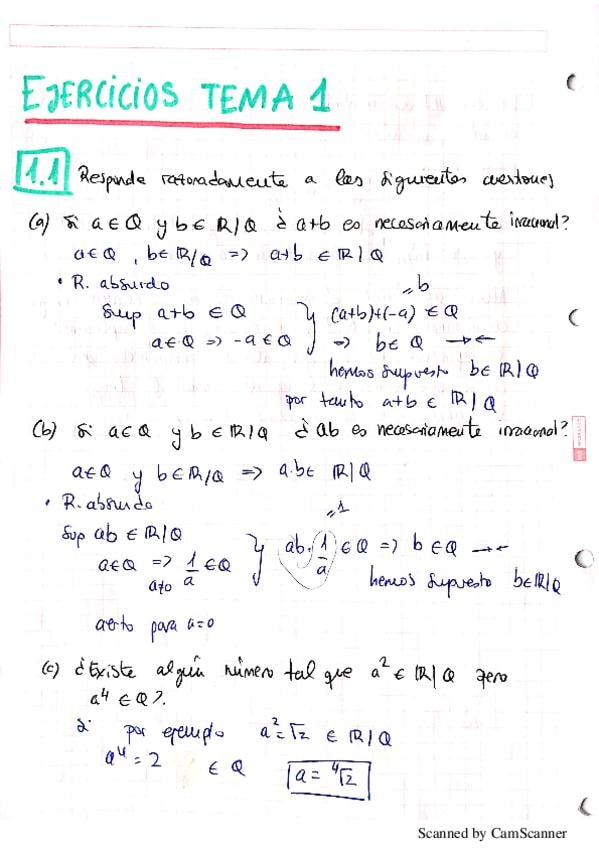 EJERCICIOS TEMA 1
1.1 Responde razonadamente a las siguientes cuestiones
(a) Si a ∈ Q y b ∈ R/Q ¿ a+b es necesariamente irracional?
a ∈ Q , b ∈ R/Q => a+b ∈ R/Q
• R. absurdo
= b
Sup a+b ∈ Q } (a+b)+(-a) ∈ Q
a ∈ Q => -a ∈ Q => b ∈ Q →←
hemos supuesto b ∈ R/Q
por tanto a+b ∈ R/Q
(b) Si a ∈ Q y b ∈ R/Q ¿ ab es necesariamente irracional?
a ∈ Q y b ∈ R/Q => a·b ∈ R/Q
• R. absurdo
= 1
Sup ab ∈ R/Q } ab · 1/a ∈ Q => b ∈ Q →←
a ∈ Q => 1/a ∈ Q hemos supuesto b ∈ R/Q
a≠0
para a=0
(c) ¿Existe algún número tal que a² ∈ R/Q pero
a⁴ ∈ Q?
Si por ejemplo a² = √2 ∈ R/Q
a⁴ = 2 ∈ Q a = ⁴√2
Scanned by CamScanner